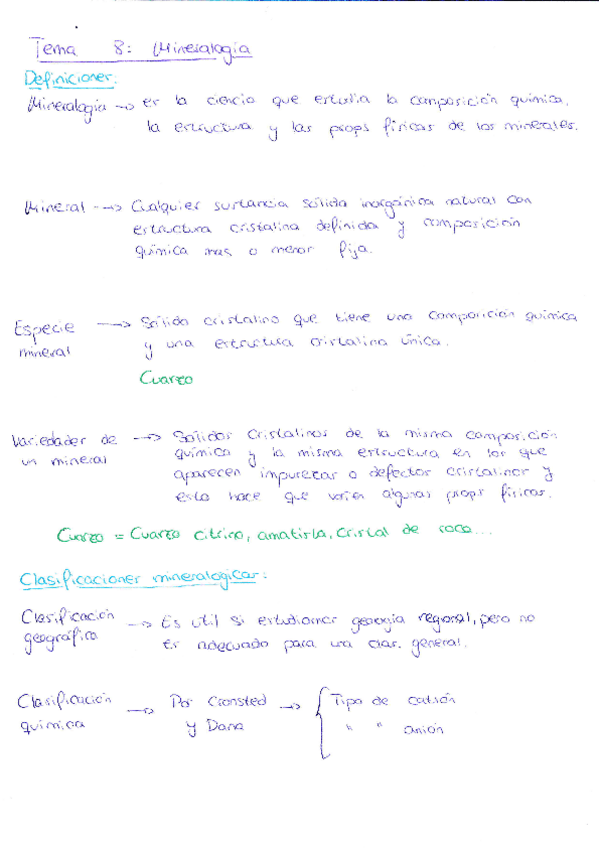 Tema 8: Mineralogía
Definiciones:
Mineralogía → es la ciencia que estudia la composición química,
la estructura y las props físicas de los minerales.
Mineral → Cualquier sustancia sólida inorgánica natural con
estructura cristalina definida y composición
química mas o menos fija.
Especie mineral → Sólido cristalino que tiene una composición química
y una estructura cristalina única.
Cuarzo
Variedades de un mineral → Sólidos cristalinos de la misma composición
química y la misma estructura en los que
aparecen impurezas o defectos cristalinos y
esto hace que varien algunas props físicas.
Cuarzo = Cuarzo citrino, amatista, cristal de roca...
Clasificaciones mineralogicas:
Clasificación geográfica → Es util si estudiamos geología regional, pero no
es adecuado para una clas. general.
Clasificación química → Por Cronsted y Dana → { Tipo de catión
" " anión